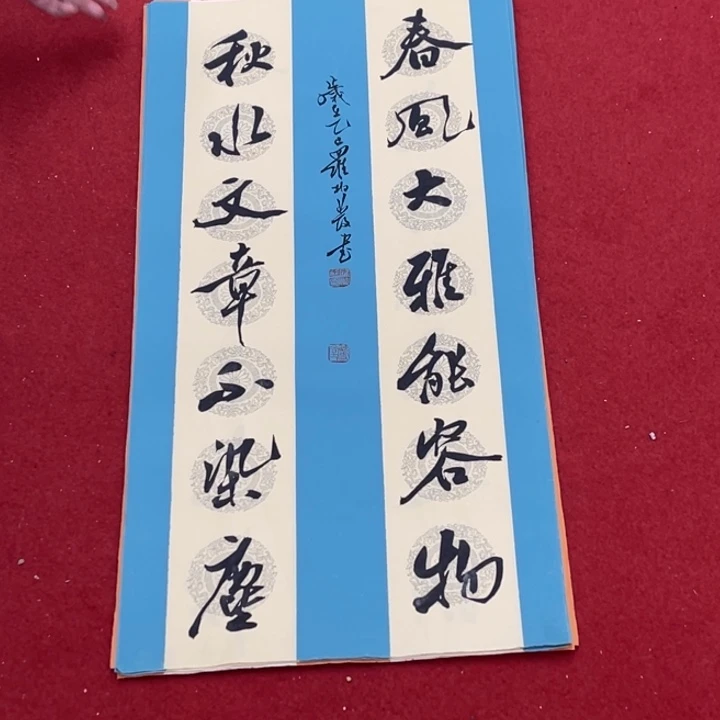 春风大雅能容物
秋水文章不染塵
歲在乙巳羅
書